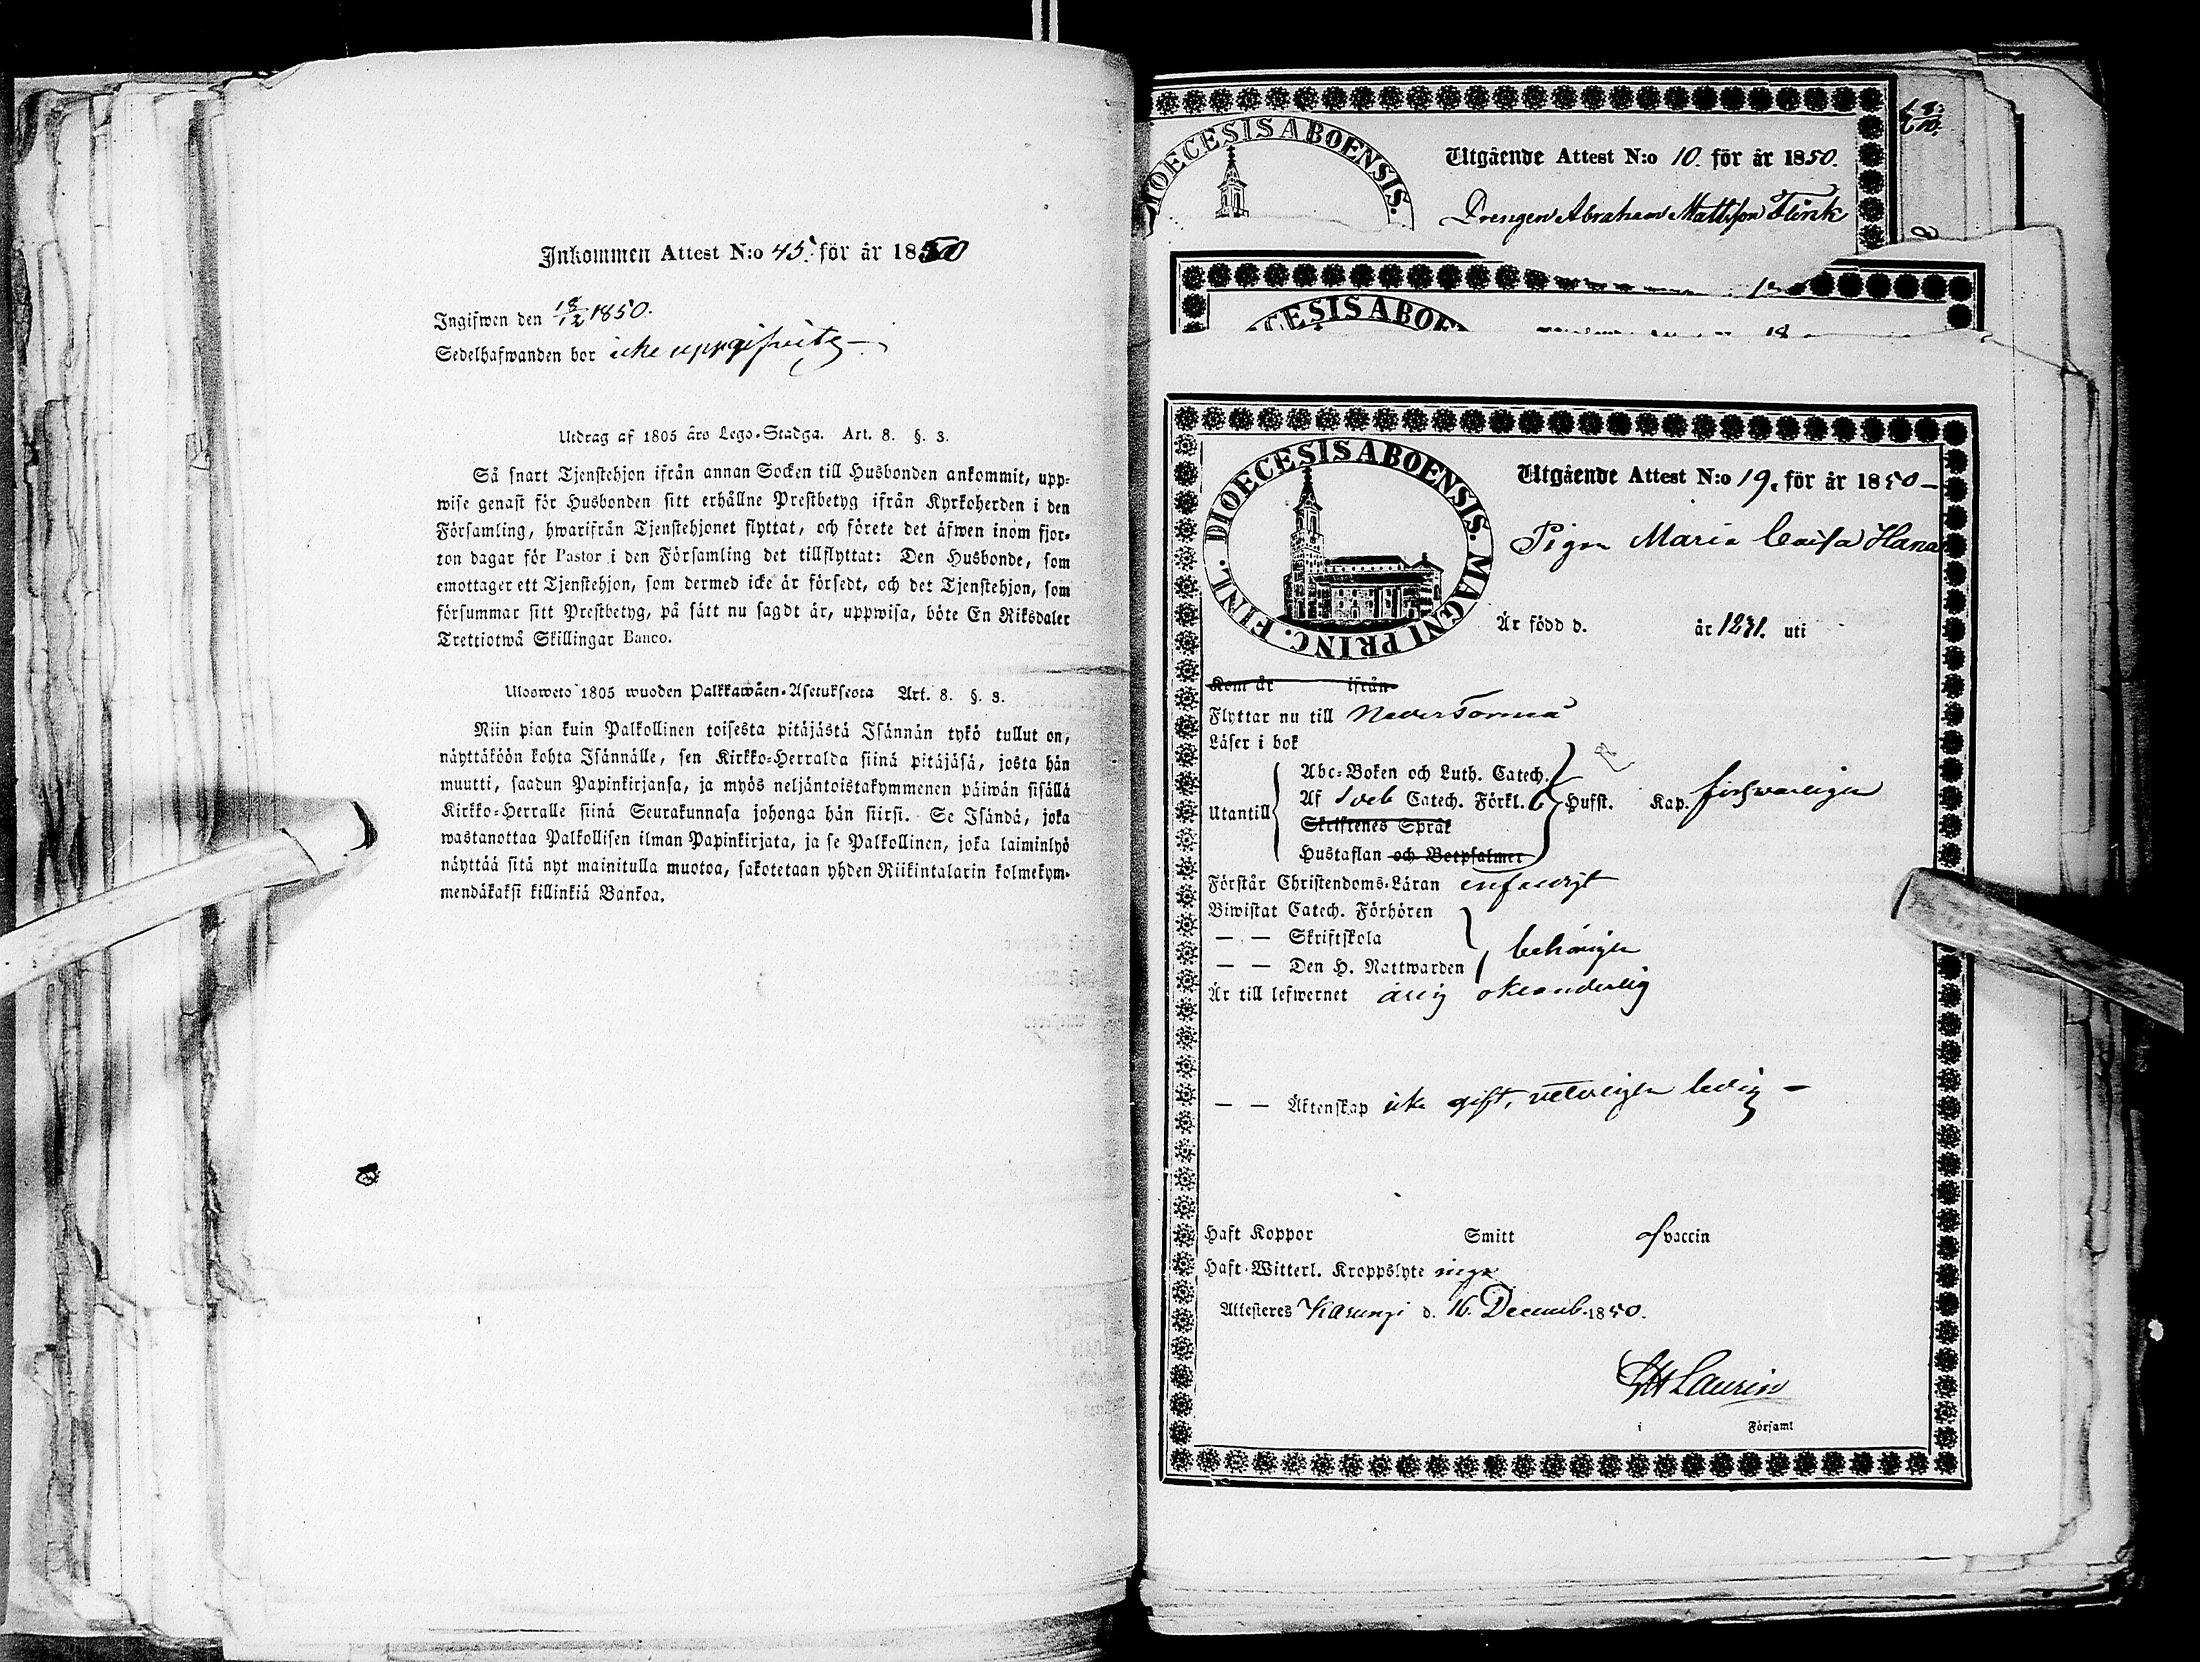 Inkommen Attest N:o 45. för år 1850
Ingifwen den 18/12 1850.
Sedelhafwanden bor icke uppgifvits
Utdrag af 1805 års Lego-Stadga. Art. 8. §. 3.
Så snart Tjenstehjon ifrån annan Socken till Husbonden ankommit, upp-
wise genast för Husbonden sitt erhållne Prestbetyg ifrån Kyrkoherden i den
Församling, hwarifrån Tjenstehjonet flyttat, och förete det äfwen inom fjor-
ton dagar för Pastor i den Församling det tillflyttat: Den Husbonde, som
emottager ett Tjenstehjon, som dermed icke är försedt, och det Tjenstehjon, som
försummar sitt Prestbetyg, på sätt nu sagdt är, uppwisa, böte En Riksdaler
Trettiotwå Skillingar Banco.
Ulosweto 1805 wuoden Palkkawäen-Asetuksesta Art. 8. §. 3.
Niin pian kuin Palkollinen toisesta pitäjästä Isännän tykö tullut on,
näyttäköön kohta Isännälle, sen Kirkko-Herralda siinä pitäjäsä, josta hän
muutti, saadun Papinkirjansa, ja myös neljäntoistakymmenen päiwän sisällä
Kirkko-Herralle siinä Seurakunnasa johonga hän siirsi. Se Isändä, joka
wastanottaa Palkollisen ilman Papinkirjata, ja se Palkollinen, joka laiminlyö
näyttää sitä nyt mainitulla muotoa, sakotetaan yhden Riikintalarin kolmekym-
mendäkaksi killinkiä Bankoa.
DIOECESIS ABOENSIS.
Utgående Attest N:o 10. för år 1850.
Drengen Abraham Mattsson Flink
CESIS ABOE
DIOECESIS ABOENSIS. MAGNI PRINC. FINL.
Utgående Attest N:o 19. för år 1850
Pigan Maria Caisa Hana
Är född d. år 1831. uti
Kom år ifrån
Flyttar nu till Neder Torneå
Läser i bok
Utantill
Abc-Boken och Luth. Catech.
Af Sveb Catech. Förkl. Hufst. Kap. försvarligen
Skriftenes Språk
Hustaflan och Botpsalmer
Förstår Christendoms-Läran enfaldigt
Biwistat Catech. Förhören
— — Skriftskola
— — Den H. Nattwarden behörigen
Är till lefwernet ärlig oklanderlig
— — Äktenskap icke gift, veterligen ledig
Haft Koppor Smitt af vaccin
Haft Witterl. Kroppslyte inga
Attesteres Karungi d. 16. Decemb. 1850.
Laurin
i Församl